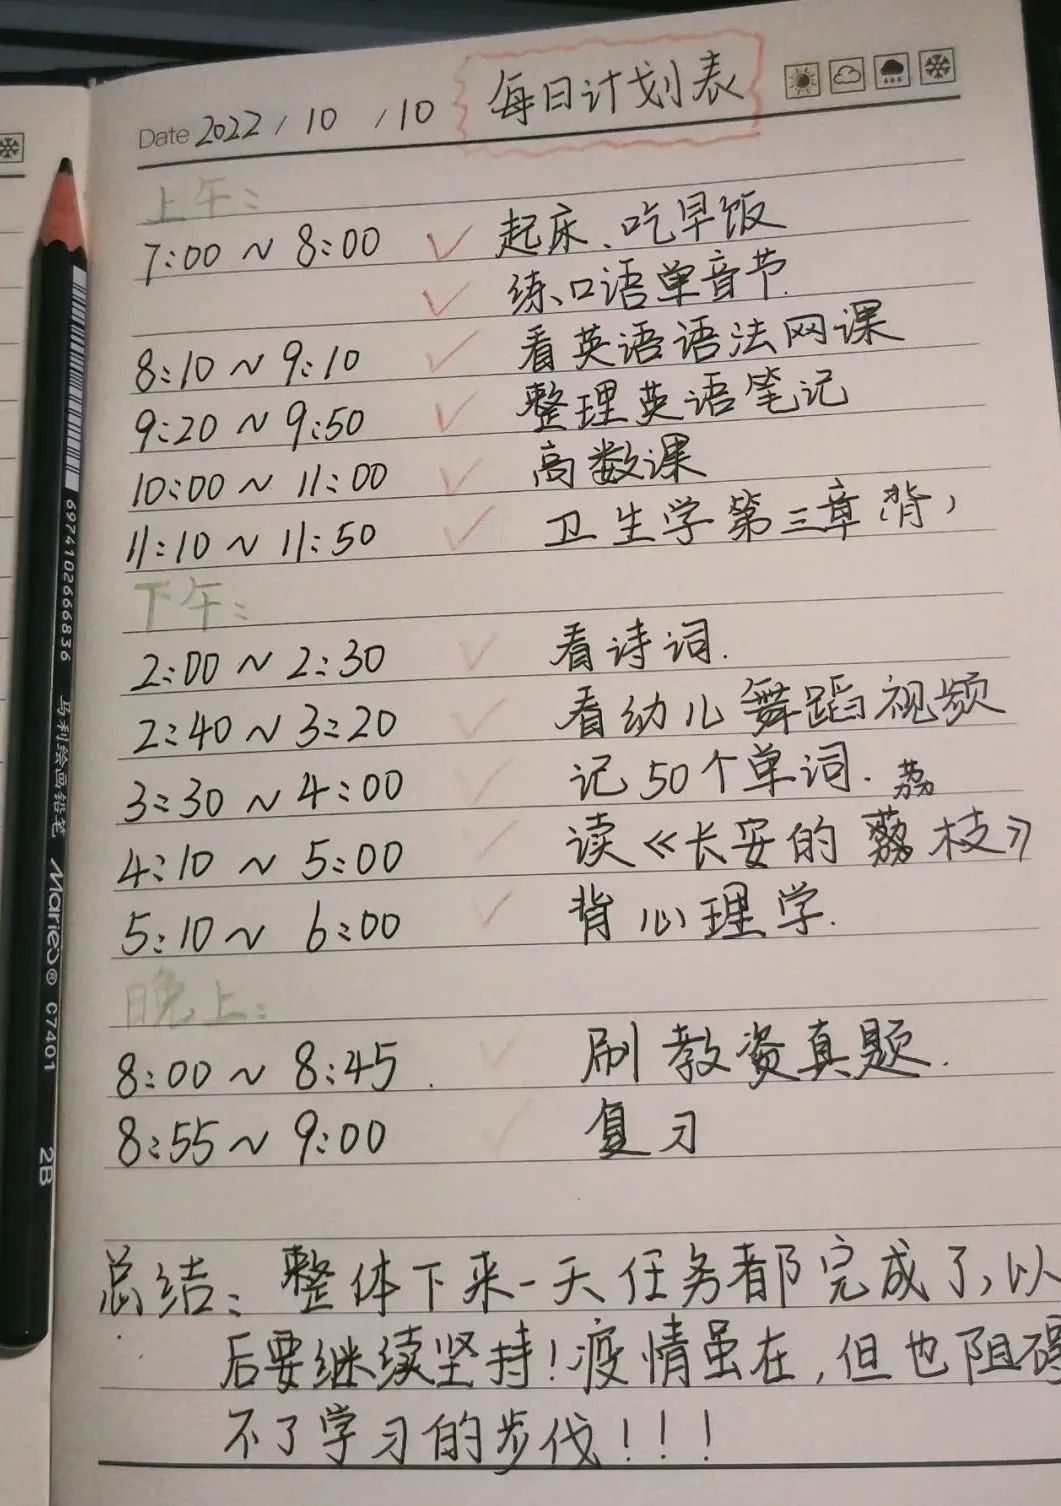 Date 2022 / 10 / 10 每日计划表
上午:
7:00 ~ 8:00 ✓ 起床、吃早饭
✓ 练口语单音节.
8:10 ~ 9:10 ✓ 看英语语法网课
9:20 ~ 9:50 ✓ 整理英语笔记
10:00 ~ 11:00 ✓ 高数课
11:10 ~ 11:50 ✓ 卫生学第三章(背)
下午:
2:00 ~ 2:30 ✓ 看诗词.
2:40 ~ 3:20 ✓ 看幼儿舞蹈视频
3:30 ~ 4:00 ✓ 记50个单词.
荔
4:10 ~ 5:00 ✓ 读《长安的荔枝》
5:10 ~ 6:00 ✓ 背心理学.
晚上:
8:00 ~ 8:45. ✓ 刷教资真题.
8:55 ~ 9:00 ✓ 复习
总结:整体下来一天任务都完成了,以
后要继续坚持!疫情虽在,但也阻碍
不了学习的步伐!!!
6974102666836 马利绘画铅笔 Marie's® C7401 2B